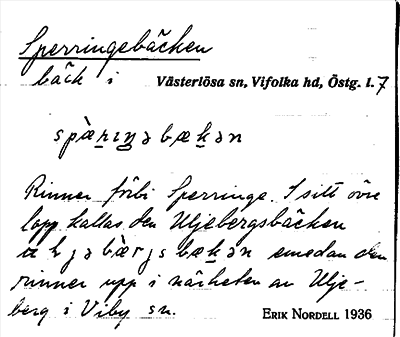 Sperringebäcken
bäck i Västerlösa sn, Vifolka hd, Östg. l. 7
spæ̀riŋəbækən
Rinner förbi Sperringe. I sitt övre
lopp kallas den Uljebergsbäcken
bæ̀rjsbækən emedan den
rinner upp i närheten av Ulje-
berg i Viby sn.
ERIK NORDELL 1936